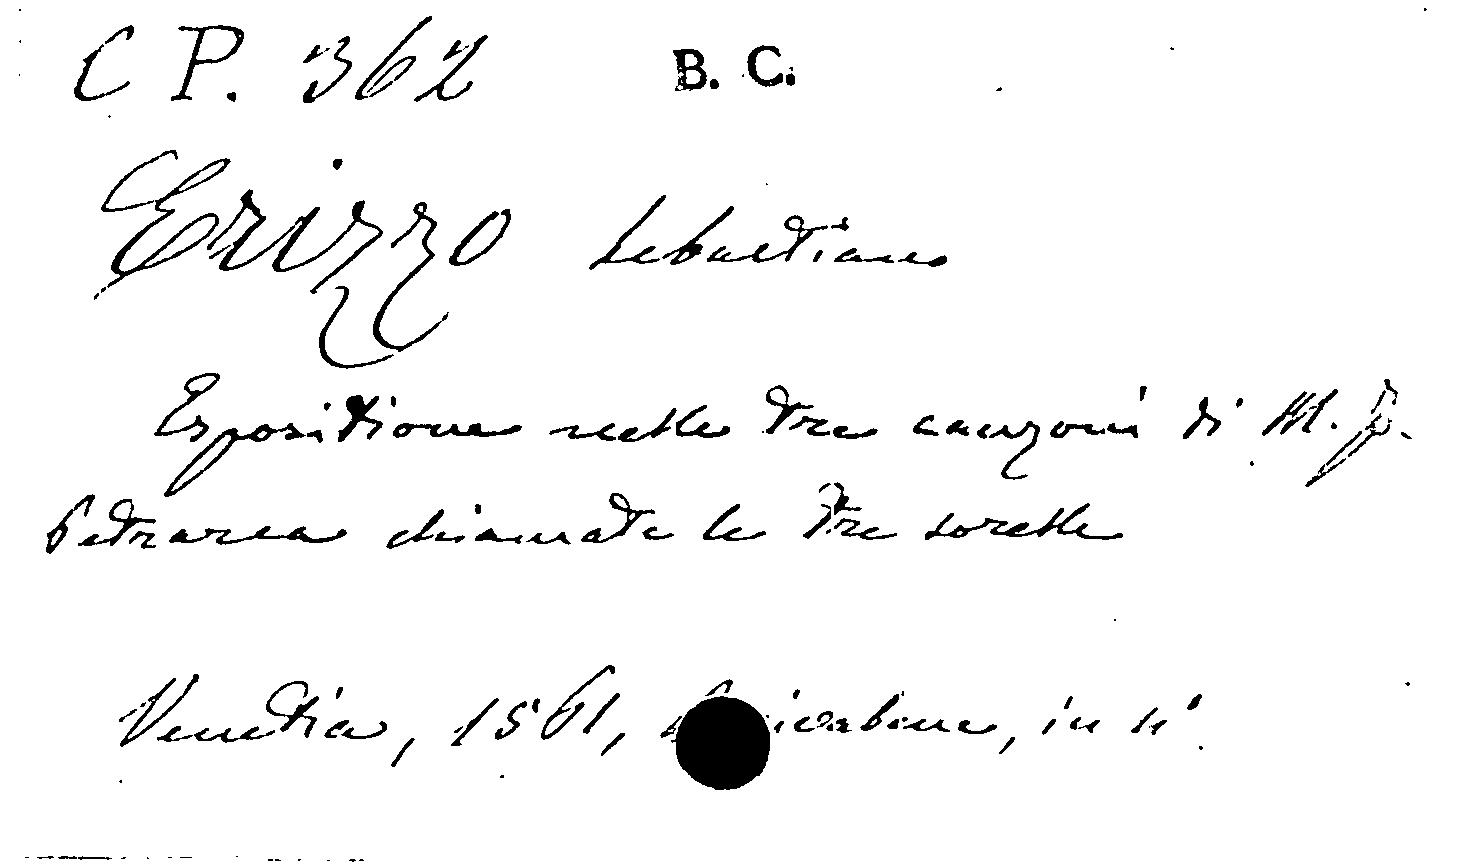 C P. 362 B. C.
Erizzo Sebastiano
Espositione nelle tre canzoni di M. F.
Petrarca chiamate le tre sorelle
Venetia, 1561, in 4°